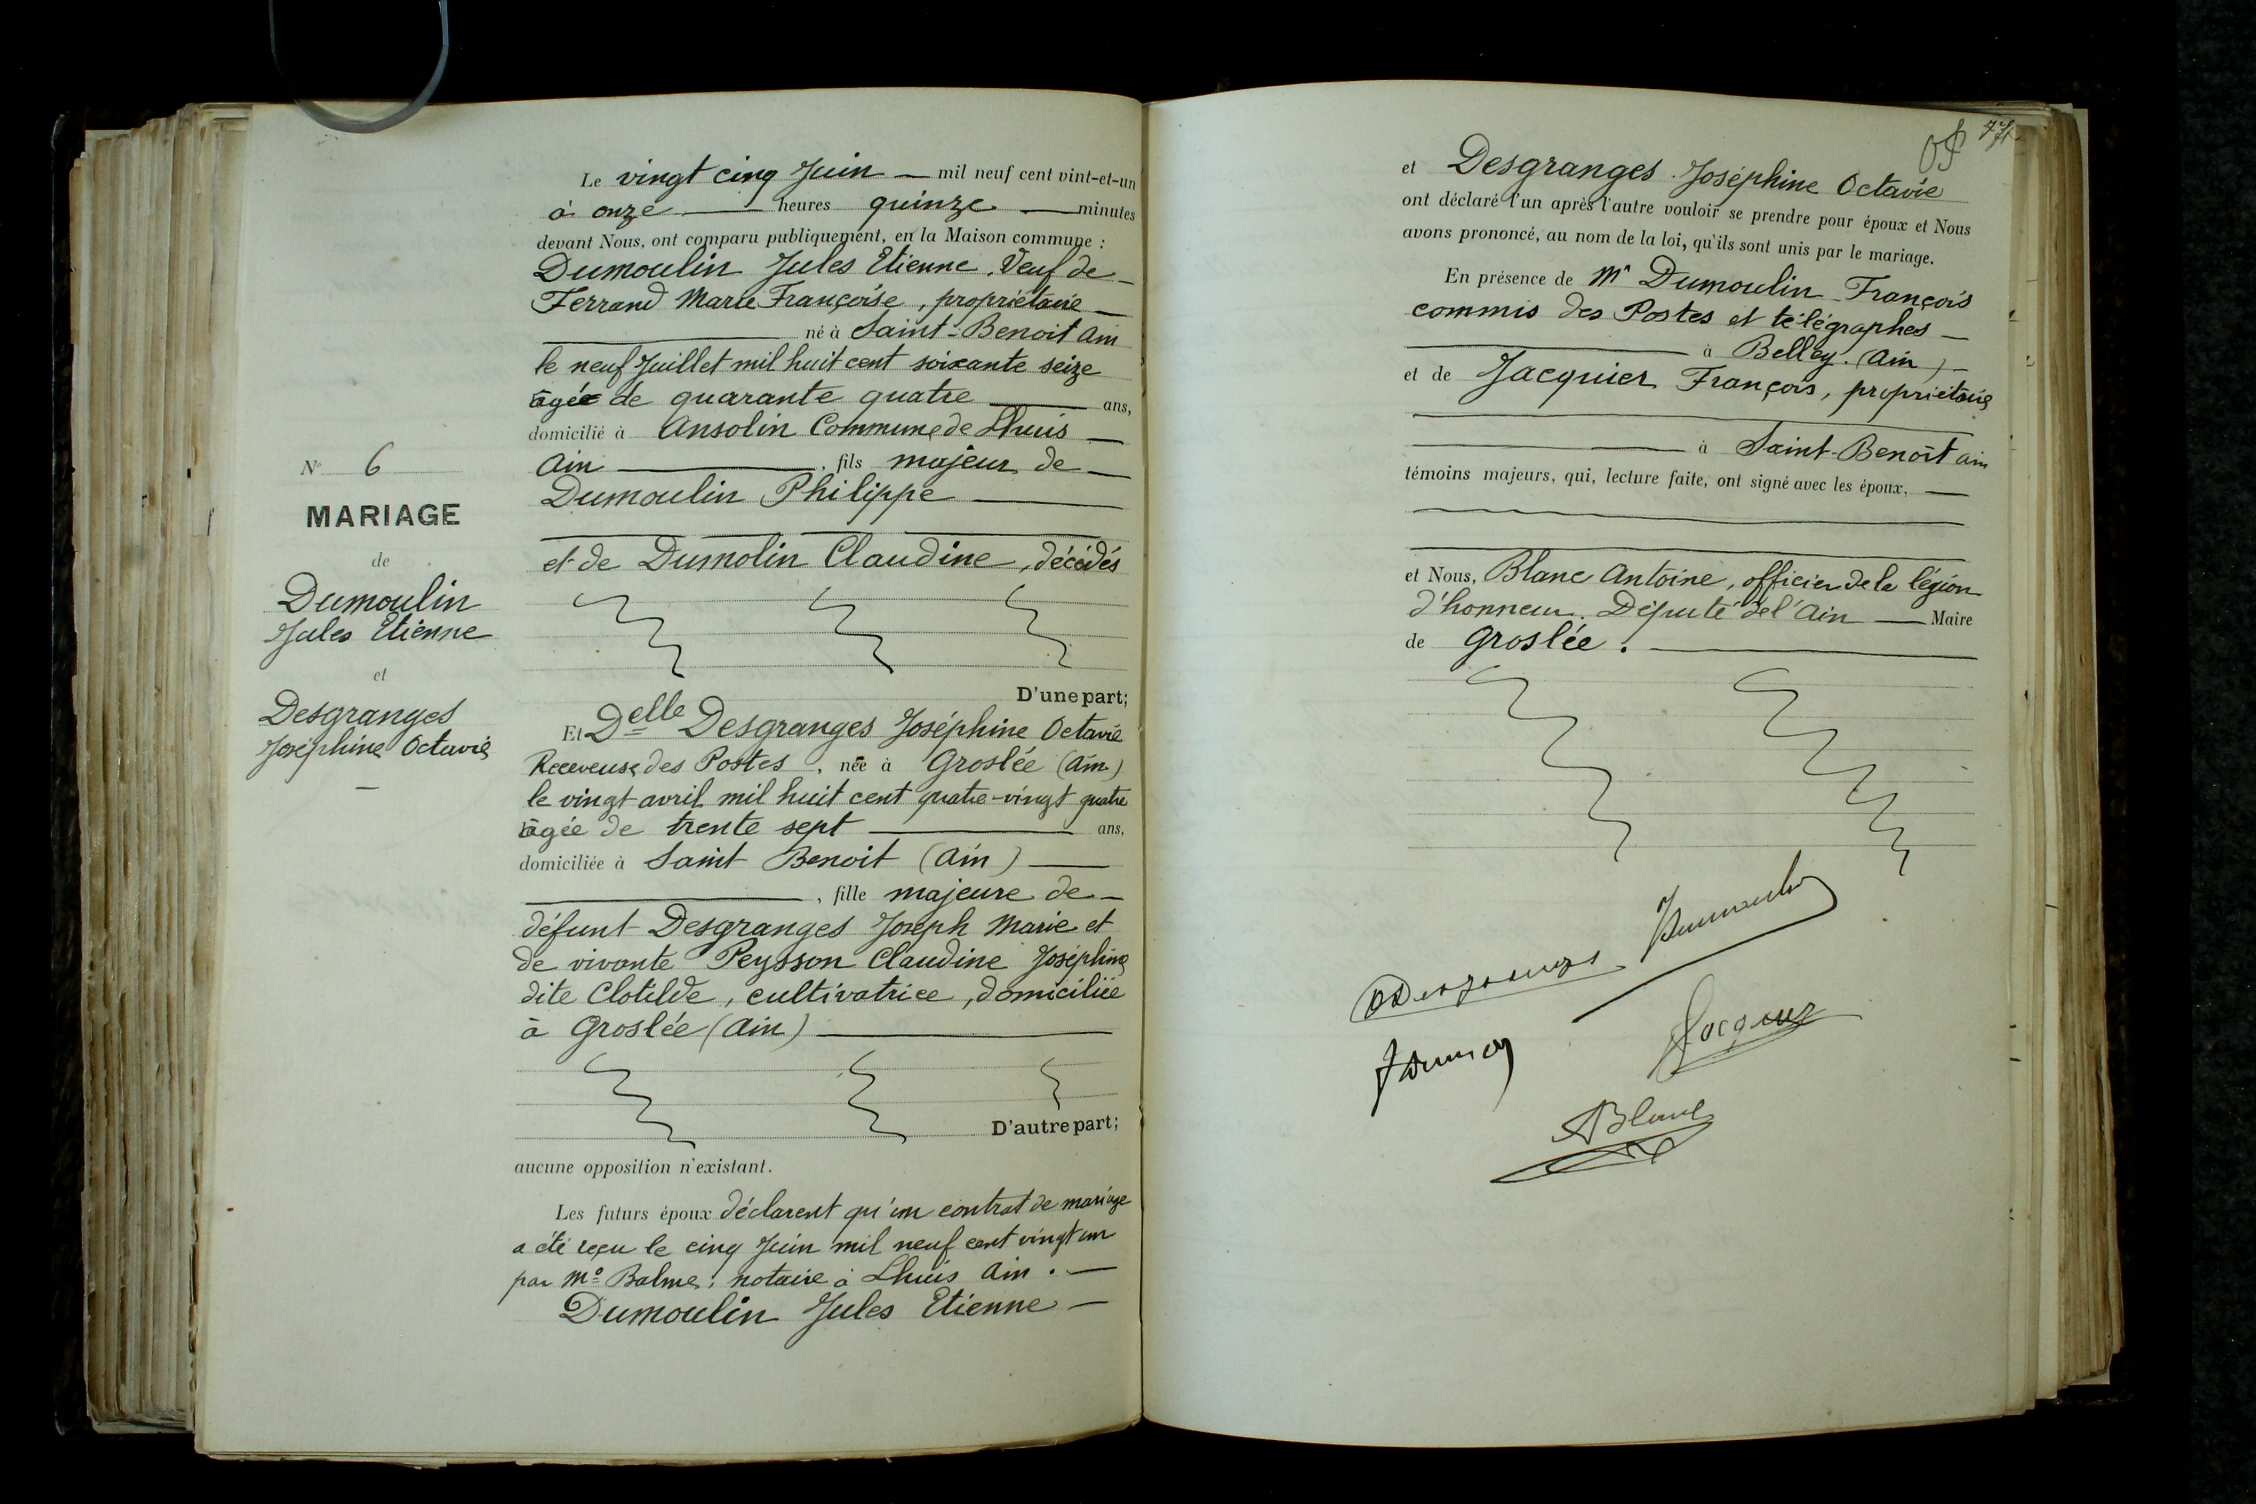 N° 6
MARIAGE
de
Dumoulin
Jules Etienne
et
Desgranges
Joséphine Octavie
Le vingt cinq Juin — mil neuf cent vint-et-un
à onze — heures quinze — minutes
devant Nous, ont comparu publiquement, en la Maison commune :
Dumoulin Jules Etienne, Veuf de —
Ferrand Marie Françoise, propriétaire —
né à Saint-Benoit Ain
le neuf Juillet mil huit cent soixante seize
âgé de quarante quatre — ans,
domicilié à Ansolin Commune de Lhuis —
Ain —, fils majeur de —
Dumoulin Philippe —
et de Dumolin Claudine, décédés
D'une part;
Et Delle Desgranges Joséphine Octavie
Receveuse des Postes, née à Groslée (Ain)
le vingt avril mil huit cent quatre-vingt quatre
âgée de trente sept — ans,
domiciliée à Saint Benoit (Ain) —
, fille majeure de —
défunt Desgranges Joseph Marie et
de vivante Peysson Claudine Joséphine
dite Clotilde, cultivatrice, domiciliée
à Groslée (Ain) —
D'autre part;
aucune opposition n'existant.
Les futurs époux déclarent qu'un contrat de mariage
a été reçu le cinq Juin mil neuf cent vingt un
par Me Balme, notaire à Lhuis Ain. —
Dumoulin Jules Etienne —
et Desgranges Joséphine Octavie
ont déclaré l'un après l'autre vouloir se prendre pour époux et Nous
avons prononcé, au nom de la loi, qu'ils sont unis par le mariage.
En présence de Mr Dumoulin François
commis des Postes et télégraphes —
à Belley. (Ain) —
et de Jacquier François, propriétaire
à Saint-Benoît Ain
témoins majeurs, qui, lecture faite, ont signé avec les époux, —
et Nous, Blanc Antoine, officier de la légion
d'honneur. Député de l'Ain — Maire
de Groslée. —
Dumoulin
ODesgranges
Jacquier
ABlanc